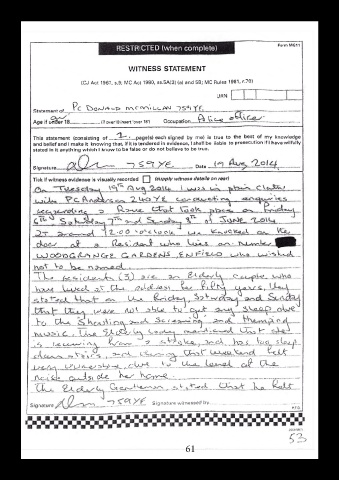 RESTRICTED (when complete)
Form MG11
WITNESS STATEMENT
(CJ Act 1967, s.9; MC Act 1980, ss.5A(3) (a) and 5B; MC Rules 1981, r.70)
URN
Statement of PC DONALD MCMILLAN 759YE
Age if under 18 (if over 18 insert 'over 18') Occupation Police officer
This statement (consisting of 1 page(s) each signed by me) is true to the best of my knowledge
and belief and I make it knowing that, if it is tendered in evidence, I shall be liable to prosecution if I have wilfully
stated in it anything which I know to be false or do not believe to be true.
Signature 759YE Date 19 Aug 2014
Tick if witness evidence is visually recorded (supply witness details on rear)
On Tuesday 19th Aug 2014 I was in plain clothes
with PC Anderson 240YE conducting enquiries
regarding a Rave that took place on Friday
6th Saturday 7th and Sunday 8th of JUNE 2014
At around 1200 o'clock we knocked on the
door of a Resident who lives on number
WOODGRANGE GARDENS ENFIELD who wished
not to be named.
The residents (3) are an Elderly couple who
have lived at the address for fifty years, they
stated that on the Friday, Saturday and Sunday
that they were not able to get any sleep due
to the Shouting and Screaming and thumping
music. The Elderly Lady mentioned that she
is recovering from a stroke, and has too sleep
down stairs, and during that weekend felt
very vulnerable due to the level of the
noise outside her home.
The Elderly Gentleman stated that he felt
Signature 759YE Signature witnessed by
53
61